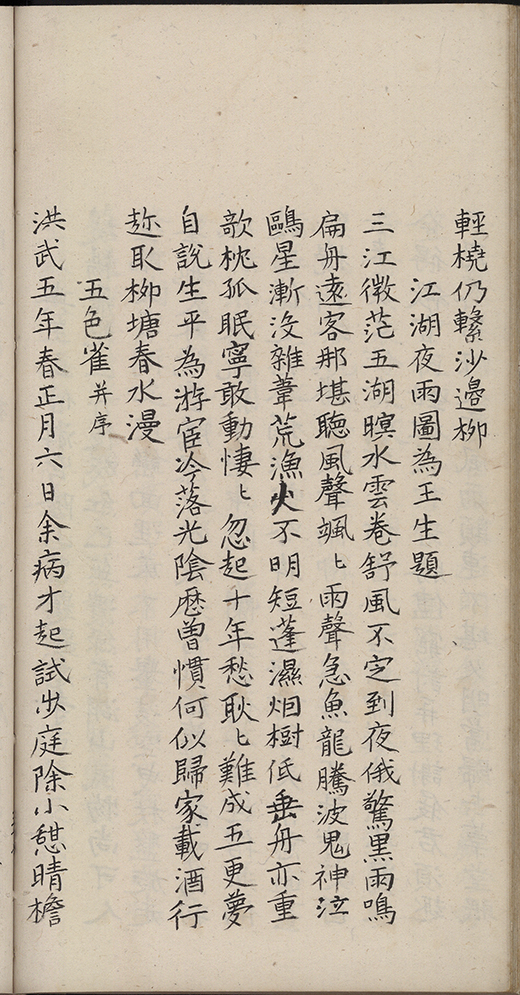 輕橈仍繫沙邊栁
江湖夜雨圖為王生題
三江微茫五湖暝水雲卷舒風不定到夜俄驚黒雨鳴
扁舟遠客那堪聴風聲颯〻雨聲急魚龍騰波鬼神泣
鷗星漸沒雜葦荒漁火不明短蓬濕烟樹低垂舟亦重
欹枕孤眠寧敢動悽〻忽起十年愁耿〻難成五更夢
自説生平為游宦冷落光陰歴曾慣何似歸家載酒行
趂取栁塘春水漫
五色雀并序
洪武五年春正月六日余病才起試步庭除小憇晴檐